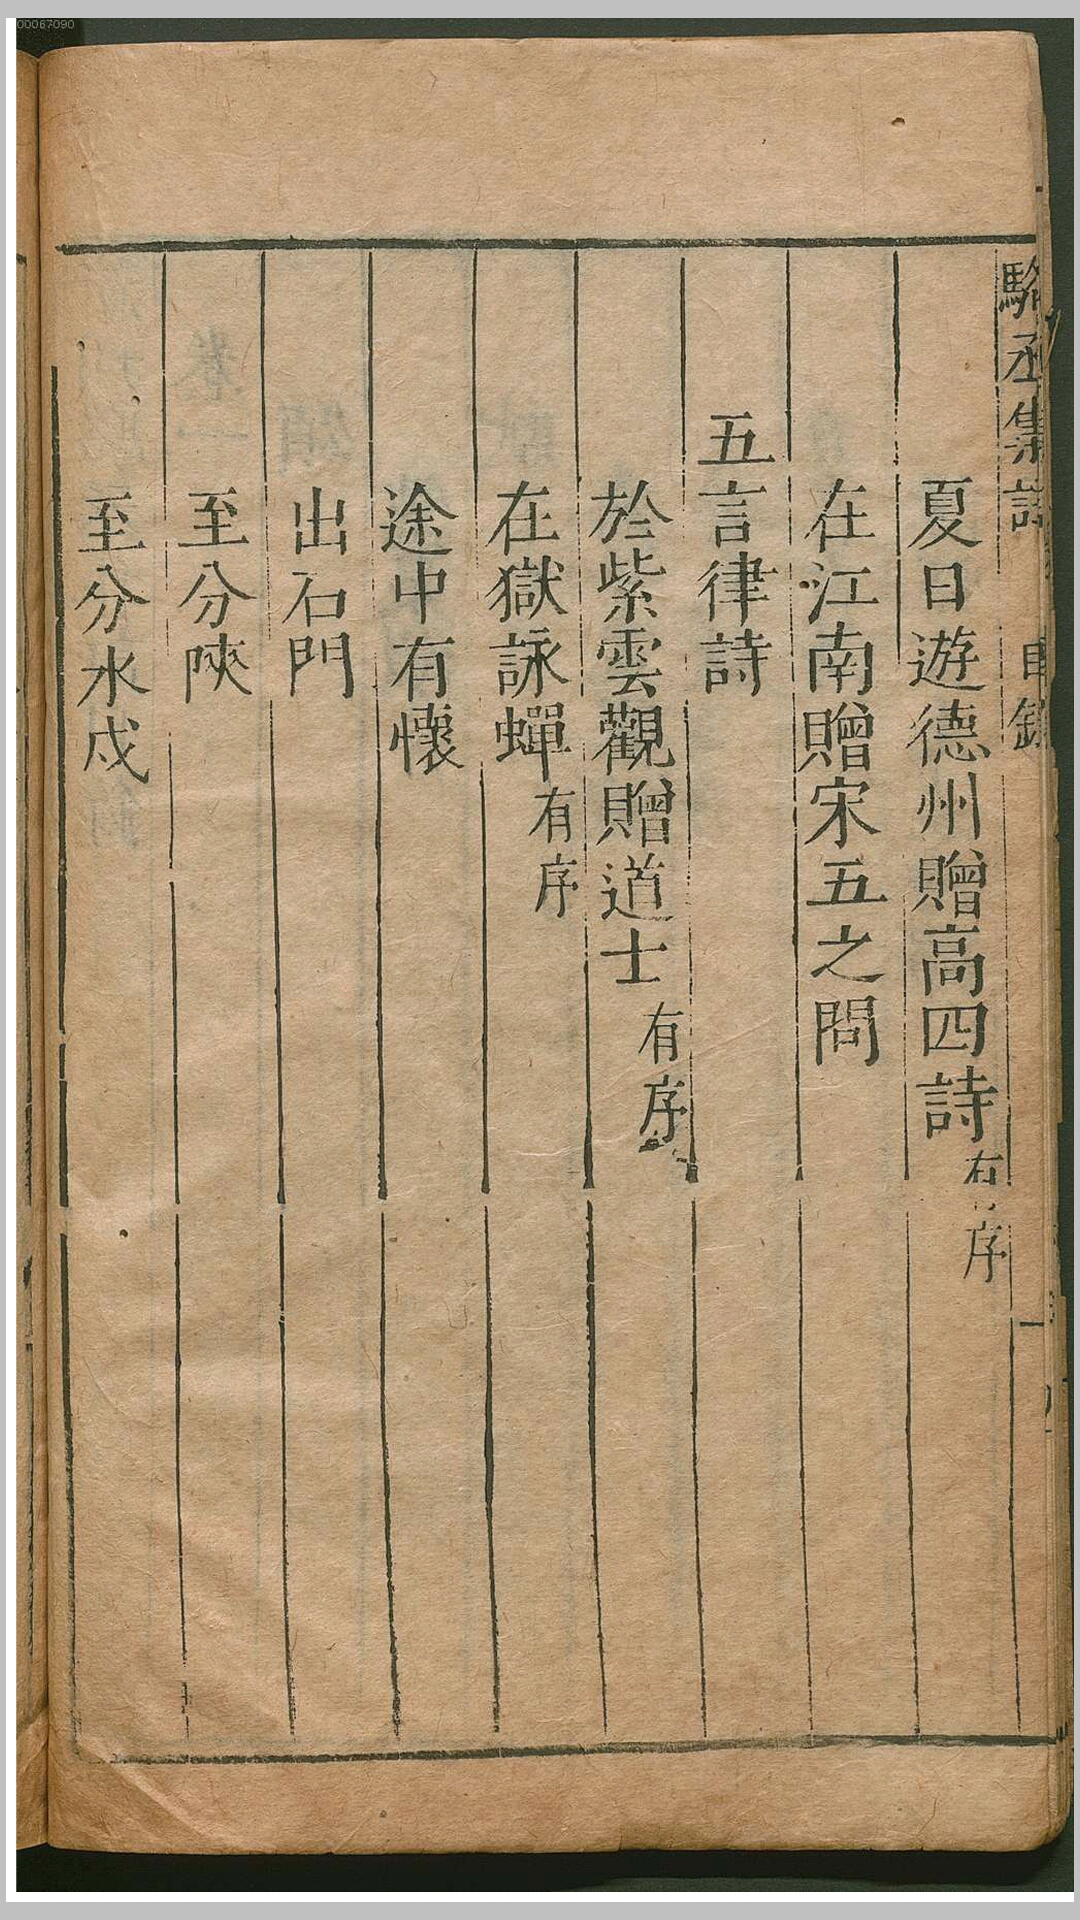 00067090
駱丞集註 目錄 一
夏日遊德州贈高四詩有序
在江南贈宋五之問
五言律詩
於紫雲觀贈道士有序
在獄詠蟬有序
途中有懷
出石門
至分陝
至分水戍